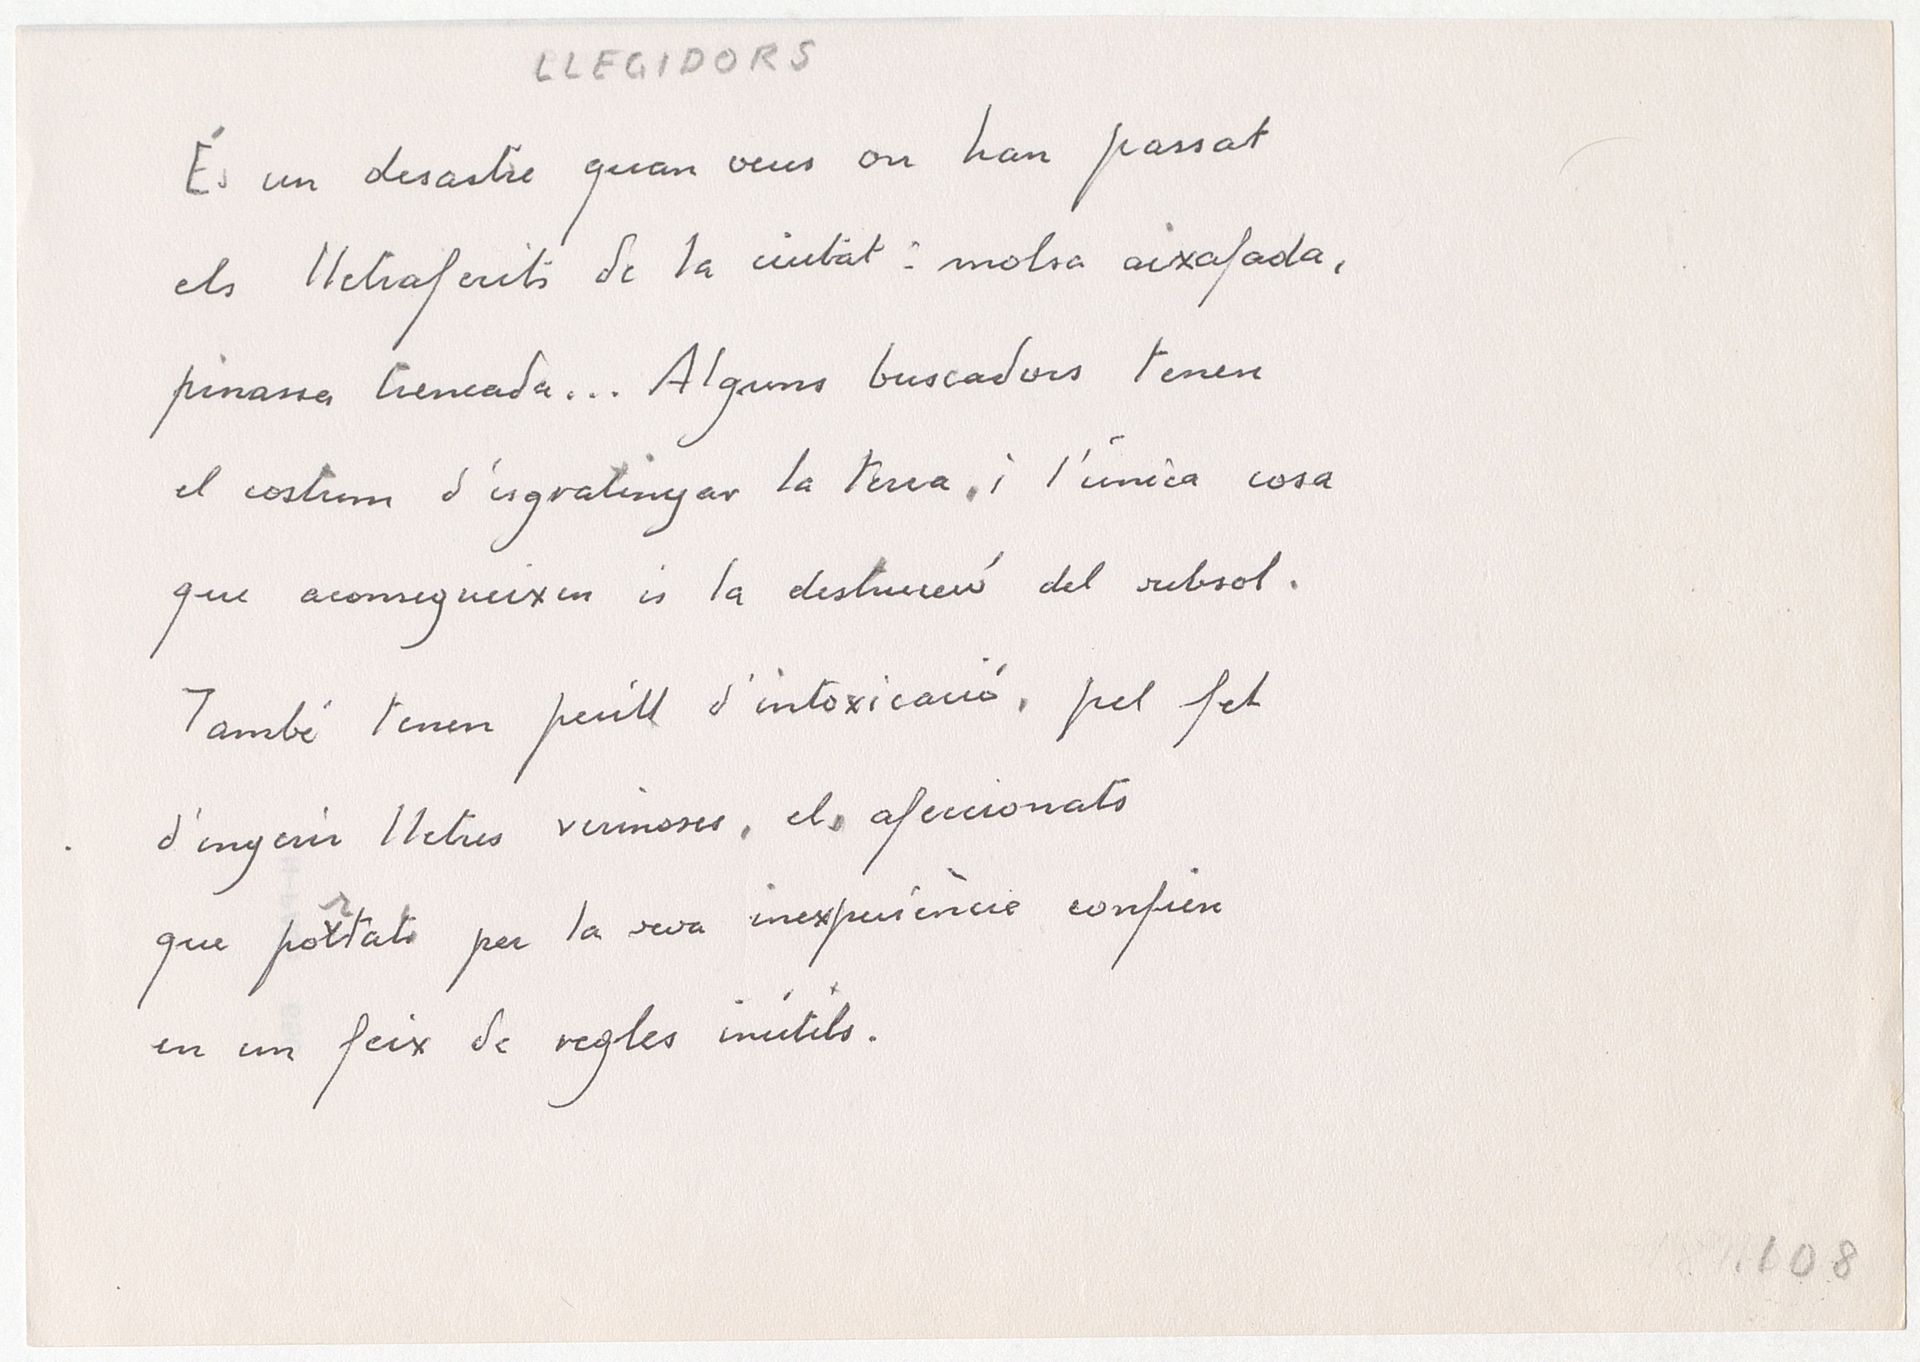 LLEGIDORS
És un desastre quan veus on han passat
els lletraferits de la ciutat: molsa aixafada,
pinassa trencada... Alguns buscadors tenen
el costum d'esgratinyar la terra, i l'única cosa
que aconsegueixen és la destrucció del subsol.
També tenen perill d'intoxicació, pel fet
d'ingerir lletres verinoses, els afeccionats
que portats per la seva inexperiència confien
en un feix de regles inútils.
108